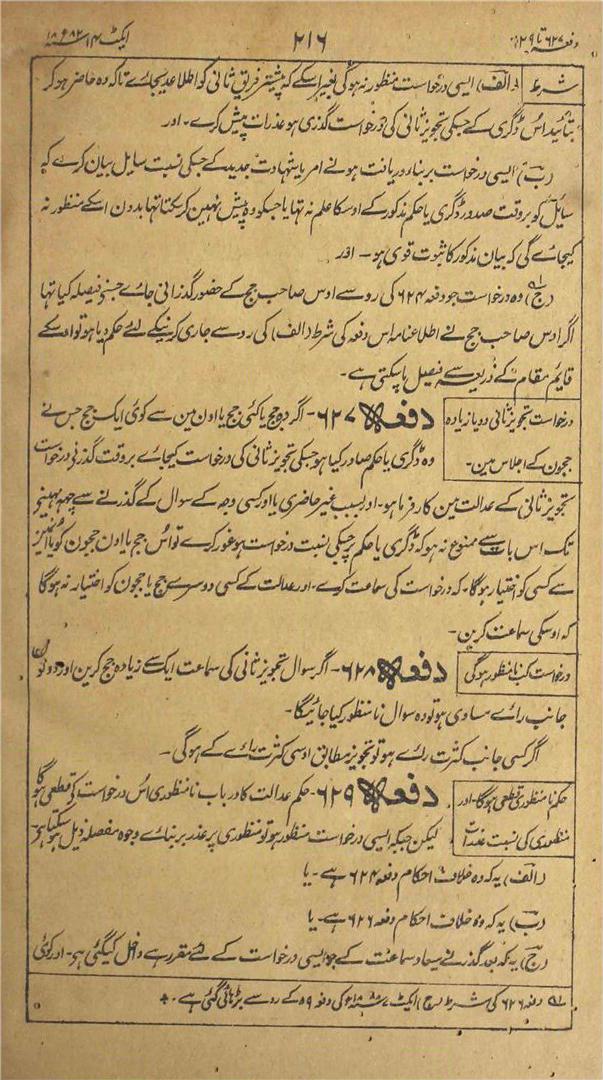 ایکٹ ۱۴ سنہ ۱۸۸۲ء ۲۱۶ دفعہ ۶۲۷ تا ۶۲۹
شرط (الف) ایسی درخواست منظور نہ ہوگی بغیر اسکے کہ پیشتر فریق ثانی کو اطلاع دیجاے تاکہ وہ حاضر ہو کر
بتائید اُس ڈگری کے جسکی تجویز ثانی کی درخواست گذری ہو عذرات پیش کرے۔ اور
(ب) ایسی درخواست بر بناء دریافت ہونے امر یا شہادت جدید کے جسکی نسبت سایل بیان کرے کہ
سایل کو بروقت صدور ڈگری یا حکم مذکور کے اوسکا علم نہ تہا یا جسکو وہ پیش نہین کر سکتا تہا بدون اسکے منظور نہ
کیجاے گی کہ بیان مذکور کا ثبوت قوی ہو۔ اور
(ج) وہ درخواست جو دفعہ ۶۲۴ کی رو سے اوس صاحب جج کے حضور گذرانی جاے جسنے فیصلہ کیا تہا
اگر اوس صاحب جج نے اطلاعنامہ اس دفعہ کی شرط (الف) کی رو سے جاری کرنیکے لئے حکم دیا ہو تو اوسکے
قایم مقام کے ذریعہ سے فیصل پا سکتی ہے۔
درخواست تجویز ثانی دو یا زیادہ
ججون کے اجلاس مین۔
دفعہ ۶۲۷۔ اگر وہ جج یا کئی جج یا اون مین سے کوئی ایک جج جس نے
وہ ڈگری یا حکم صادر کیا ہو جسکی تجویز ثانی کی درخواست کیجاے بروقت گذرنے درخواست
تجویز ثانی کے عدالت مین کار فرما ہو۔ اور بسبب غیر حاضری یا اور کسی وجہ کے سوال کے گذرنے سے چہہ مہینے
تک اس بات سے ممنوع نہ ہو کہ ڈگری یا حکم پر جسکی نسبت درخواست ہو غور کرے تو اُس جج یا اون ججون کو یا اُنمین
سے کسی کو اختیار ہوگا۔ کہ درخواست کی سماعت کرے۔ اور عدالت کے کسی دوسرے جج یا ججون کو اختیار نہ ہوگا
کہ اوسکی سماعت کرین۔
درخواست کب نامنظور ہوگی
دفعہ ۶۲۸۔ اگر سوال تجویز ثانی کی سماعت ایک سے زیادہ جج کرین اور دونون
جانب راے مساوی ہو تو وہ سوال نامنظور کیا جائیگا۔
اگر کسی جانب کثرت راے ہو تو تجویز مطابق اوسی کثرت راے کے ہوگی۔
حکم نامنظوری قطعی ہوگا۔ اور
منظوری کی نسبت عذرات
دفعہ ۶۲۹۔ حکم عدالت کا در باب نامنظوری اُس درخواست کے قطعی ہوگا
لیکن جبکہ ایسی درخواست منظور ہو تو منظوری پر عذر بر بناے وجوہ مفصلہ ذیل ہو سکتا ہے۔
(الف) یہ کہ وہ خلاف احکام دفعہ ۶۲۴ ہے۔ یا
(ب) یہ کہ وہ خلاف احکام دفعہ ۶۲۶ ہے۔ یا
(ج) یہ کہ بعد گذرنے میعاد سماعت کے جو ایسی درخواست کے لئے مقرر ہے داخل کیگئی ہو۔ اور کوئی
دفعہ ۶۲۶ کی شرط (ج) ایکٹ ۷ سنہ ۱۸۸۸ء کی دفعہ ۵۹ کے رو سے بڑہائی گئی ہے۔